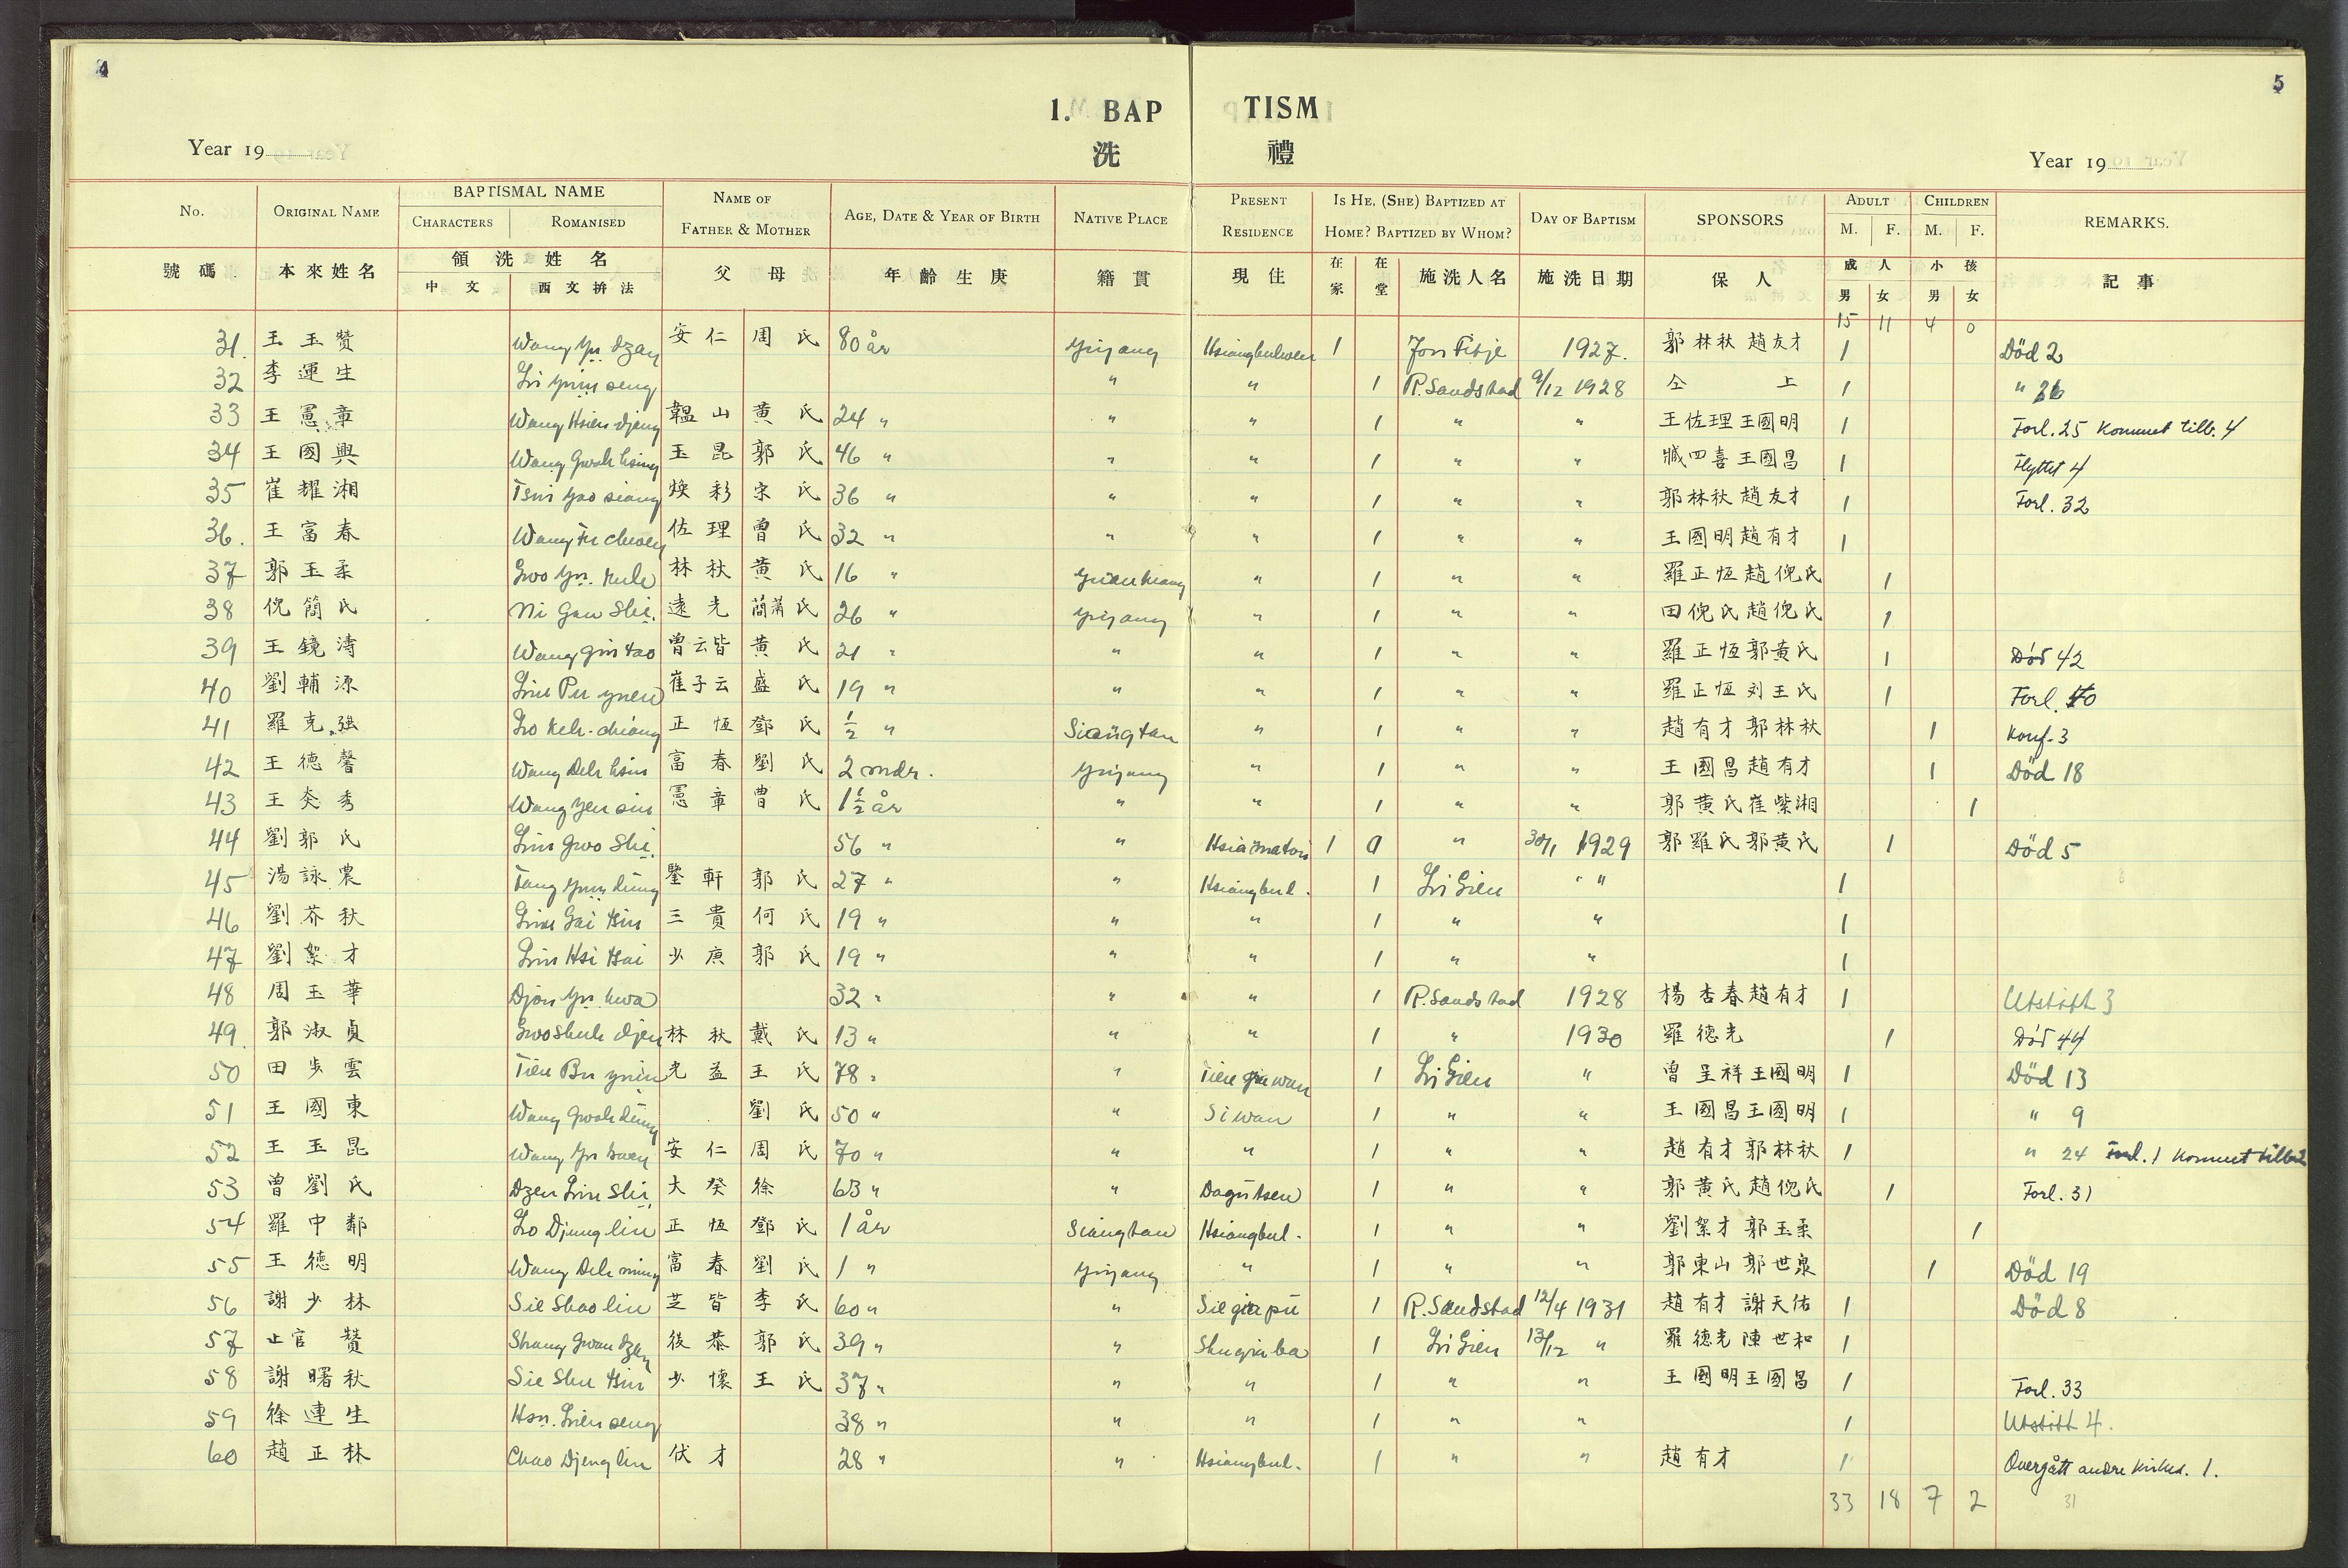 4
5
1. BAP TISM
洗 禮
Year 19
Year 19
No. ORIGINAL NAME BAPTISMAL NAME CHARACTERS ROMANISED NAME OF FATHER & MOTHER AGE, DATE & YEAR OF BIRTH NATIVE PLACE PRESENT RESIDENCE IS HE, (SHE) BAPTIZED AT HOME? BAPTIZED BY WHOM? DAY OF BAPTISM SPONSORS ADULT M. F. CHILDREN M. F. REMARKS.
號碼 本來姓名 領洗姓名 中文 西文拚法 父母 年齡生庚 籍貫 現住 在家 在堂 施洗人名 施洗日期 保人 成人 男 女 小孩 男 女 記事
15 11 4 0
31. 王玉贊 Wang Yu Dzan 安仁 周氏 80 år Yiyang 1 Jon Fitje 1927. 郭林秋 趙友才 1 Död 2
32 李運生 Li Yuin seng " " 1 R. Sandstad 9/12 1928 仝上 1 " 36
33 王憲章 Wang Hsien djang 韞山 黄氏 24 " " " 1 " " 王佐理 王國明 1 Forl. 25 Kommet tilb. 4
34 王國興 Wang Gwoh hsing 玉昆 郭氏 46 " " " 1 " " 臧四喜 王國昌 1 Flyttet 4
35 崔耀湘 Tsui Yao siang 煥彩 宋氏 36 " " " 1 " " 郭林秋 趙友才 1 Forl. 32
36. 王富春 Wang Fu chwen 佐理 曾氏 32 " " " 1 " " 王國明 趙有才 1
37 郭玉柔 Gwo Yu 林秋 黄氏 16 " " 1 " " 羅正恆 趙倪氏 1
38 倪簡氏 Ni Gan Shi. 遠光 簡蕭氏 26 " Yiyang " 1 " " 田倪氏 趙倪氏 1
39 王鏡濤 Wang Gin tao 曾云皆 黄氏 21 " " " 1 " " 羅正恆 郭黄氏 1 Död 42
40 劉輔源 Liu Fu yuen 崔子云 盛氏 19 " " " 1 " " 羅正恆 刘王氏 1 Forl. 40
41 羅克强 Lo Keh-chiang 正恆 鄧氏 1/2 " Siangtan " 1 " " 趙有才 郭林秋 1 Konf. 3
42 王德馨 Wang Deh hsin 富春 劉氏 2 mdr. Yiyang " 1 " " 王國昌 趙有才 1 Död 18
43 王炎秀 Wang Yen siu 憲章 曹氏 1 1/2 år " " 1 " " 郭黄氏 崔紫湘 1
44 劉郭氏 Liu Gwo Shi. 56 " " 1 " 30/1 1929 郭羅氏 郭黄氏 1 Död 5
45 湯詠農 Tang Yuin lung 鑒軒 郭氏 27 " " Hsiangbul. 1 Li Gien " " 1
46 劉芥秋 Liu Gai tsiu 三貴 何氏 19 " " " 1 " " 1
47 劉絜才 Liu Hsi tsai 少庚 郭氏 19 " " " 1 " " 1
48 周玉華 Djou Yu. hwa 32 " " " 1 R. Sandstad 1928 楊杏春 趙有才 1 Utstött 3
49. 郭淑貞 Gwo Shuh djen 林秋 戴氏 13 " " " 1 " 1930 羅德光 1 Död 44
50 田步雲 Tien Bu yuin 光益 王氏 78 " " Tien gia wan 1 Li Gien " 曾呈祥 王國明 1 Död 13
51 王國東 Wang Gwoh dung 劉氏 50 " " Si wan 1 " " 王國昌 王國明 1 " 9
52 王玉昆 Wang Yu kwen 安仁 周氏 70 " " " 1 " " 趙有才 郭林秋 1 " 24 Forl. 1 Kommet tilb. 2
53 曾劉氏 Dzen Liu Shi 大癸 徐 63 " " Dagutsen 1 " " 郭黄氏 趙倪氏 1 Forl. 31
54 羅中鄰 Lo Djung lin 正恆 鄧氏 1 år Siangtan Hsiangbul. 1 " " 劉絜才 郭玉柔 1
55 王德明 Wang Deh ming 富春 劉氏 1 " Yiyang " 1 " " 郭東山 郭世泉 1 Död 19
56 謝少林 Sie Shao lin 芝皆 李氏 60 " " Sie gia pu 1 R. Sandstad 12/4 1931 趙有才 謝天佑 1 Död 8
57 上官贊 Shang Gwan Dzan 後恭 郭氏 39 " " Shugia ba 1 Li Gien 13/12 " 羅德光 陳世和 1
58 謝曙秋 Sie Shu tsiu 少懷 王氏 37 " " " 1 " " 王國明 王國昌 1 Forl. 33
59 徐連生 Hsu. Lien seng 38 " " " 1 " " 1 Utstött 4.
60 趙正林 Chao Djeng lin 伏才 28 " " Hsiangbul. 1 " " 趙有才 1 Overgått andre kirkes. 1.
33 18 7 2 31